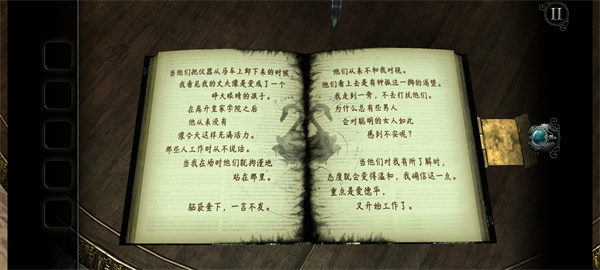 当他们把仪器从马车上卸下来的时候，
我看见我的丈夫像是变成了一个
睁大眼睛的孩子。
在离开皇家学院之后
他从来没有
像今天这样充满活力。
那些人工作时从不说话。
当我在场时他们就拘谨地
站在那里。
脑袋垂下，一言不发。
他们从来不和我对视。
他们看上去是有种做这一切的渴望。
我走到一旁，不去打扰他们。
为什么总有些男人
会对聪明的女人如此
感到不安呢？
当他们对我有所了解时，
态度就会变得温和，我确信这一点。
重点是爱德华，
又开始工作了。
II